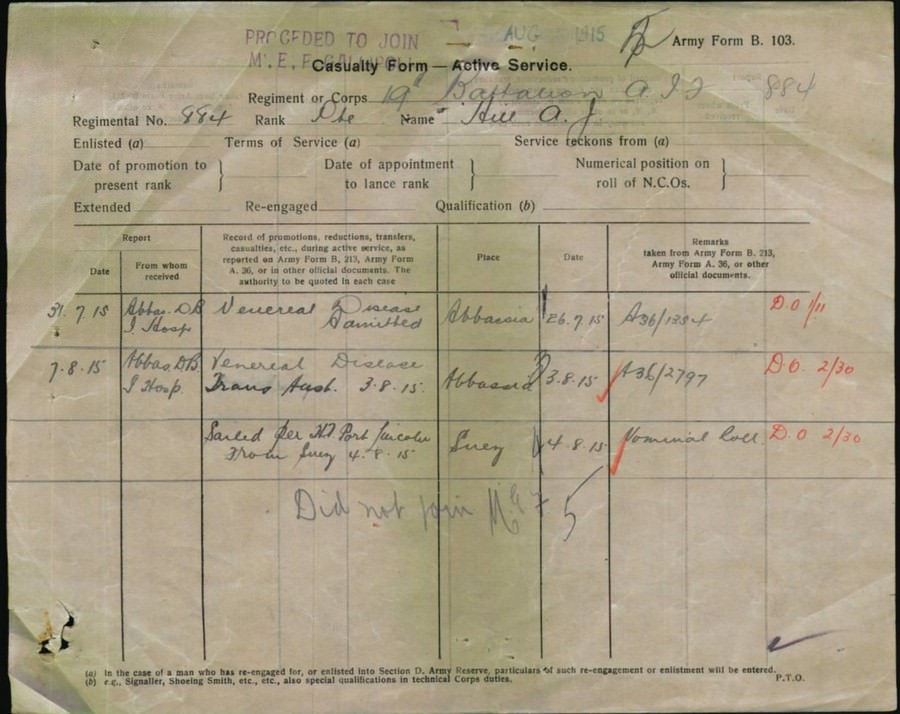 PROCEDED TO JOIN AUG 1915 Army Form B. 103.
M.E.F. GALLIPOLI
Casualty Form — Active Service.
Regiment or Corps 19 Battalion A I F 884
Regimental No. 884 Rank Pte Name Hill A. J.
Enlisted (a) Terms of Service (a) Service reckons from (a)
Date of promotion to present rank } Date of appointment to lance rank } Numerical position on roll of N.C.Os. }
Extended Re-engaged Qualification (b)
Report
Date
From whom received
Record of promotions, reductions, transfers,
casualties, etc., during active service, as
reported on Army Form B, 213, Army Form
A. 36, or in other official documents. The
authority to be quoted in each case
Place
Date
Remarks
taken from Army Form B. 213,
Army Form A. 36, or other
official documents.
31.7.15 Abbas. D.B Venereal Disease Abbassia 26.7.15 A36/1384 D.O 1/11
I Hosp Admitted
7.8.15 Abbas. D.B. Venereal Disease Abbassia 3.8.15 A36/2797 D.O. 2/30
I Hosp. Trans Aust. 3.8.15.
Sailed per HT Port Lincoln Suez 4.8.15 Nominal Roll D.O 2/30
From Suez 4.8.15
Did not join MEF 5
(a) In the case of a man who has re-engaged for, or enlisted into Section D, Army Reserve, particulars of such re-engagement or enlistment will be entered.
(b) e.g., Signaller, Shoeing Smith, etc., etc., also special qualifications in technical Corps duties. P.T.O.